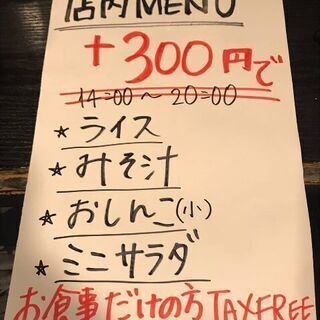 店内MENU
+300円で
14:00～20:00
★ライス
★みそ汁
★おしんこ(小)
★ミニサラダ
お食事だけの方TAXFREE